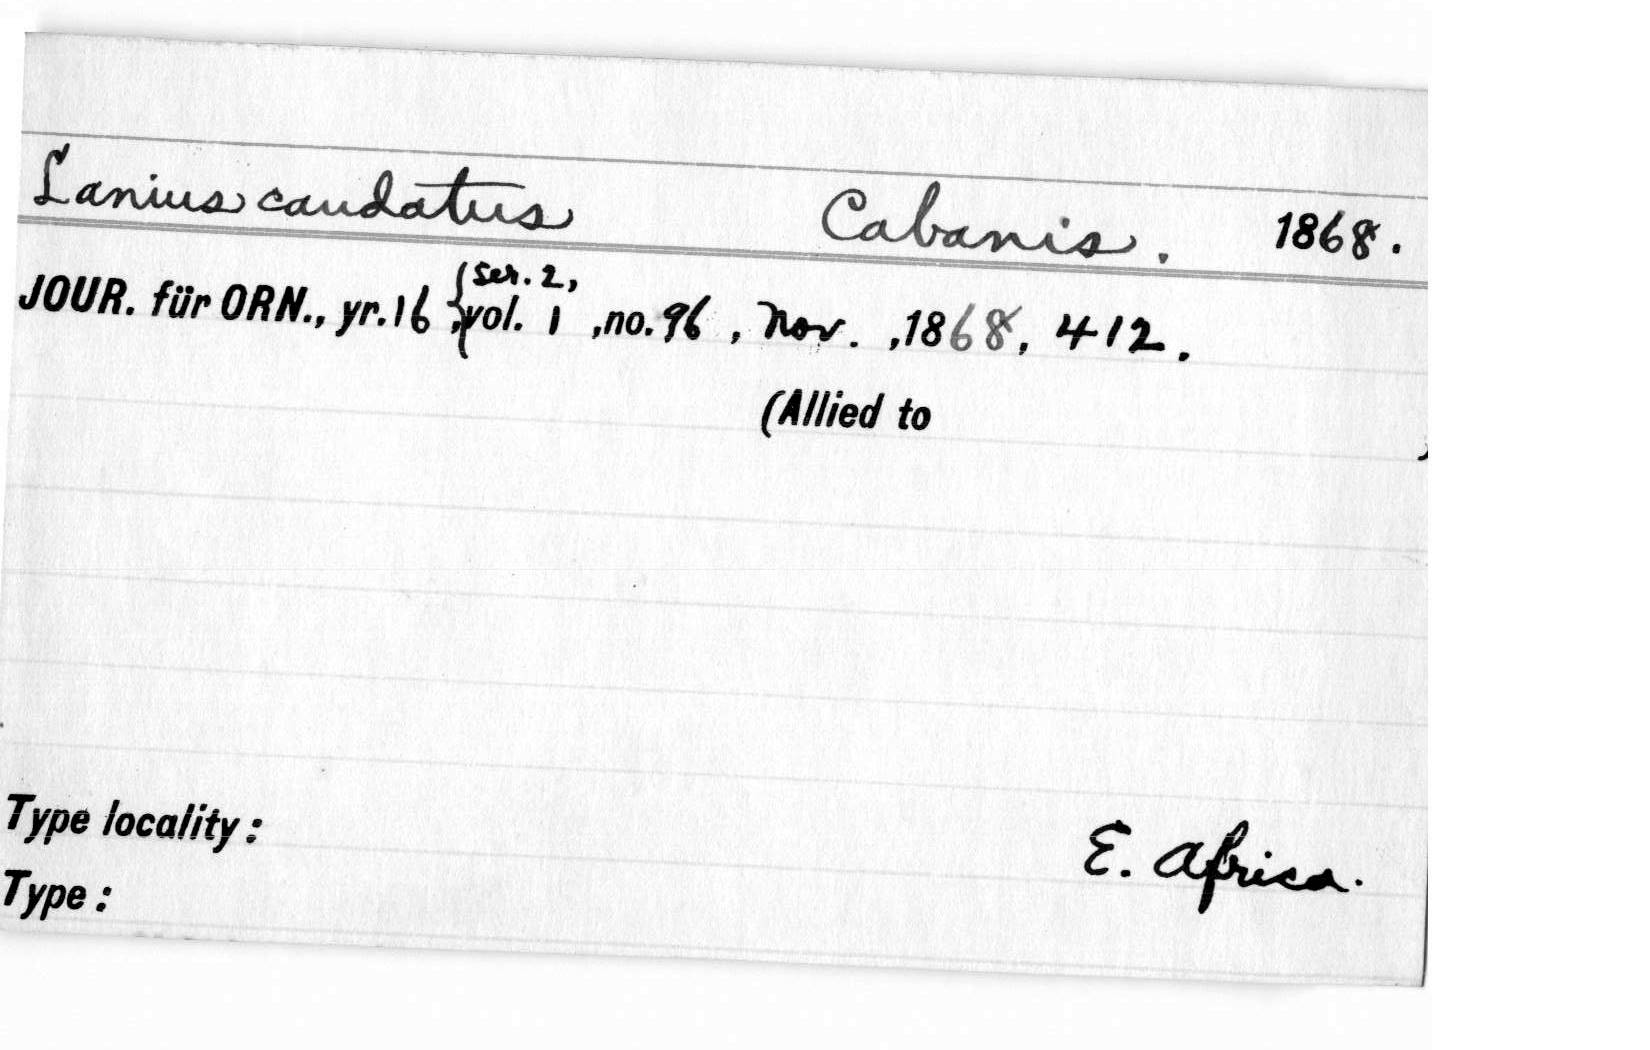 Lanius caudatus Cabanis. 1868.
JOUR. für ORN., yr.16, {ser. 2, vol. 1, no. 96, Nov., 1868, 412.
(Allied to )
Type locality: E. Africa.
Type: